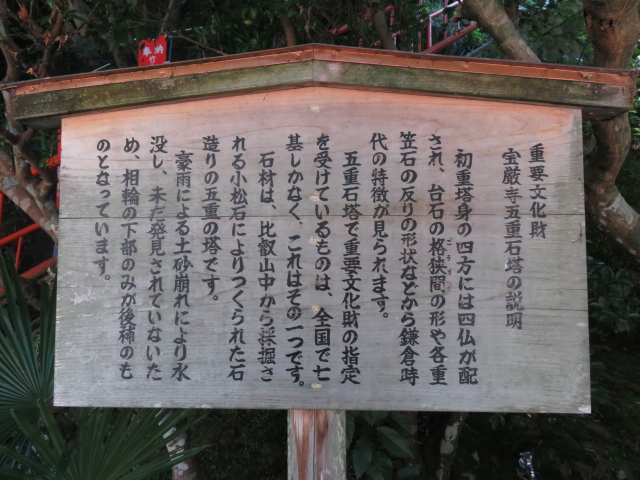 重要文化財
宝厳寺五重石塔の説明
初重塔身の四方には四仏が配
され、台石の格狭間の形や各重
ごうざま
笠石の反りの形状などから鎌倉時
代の特徴が見られます。
五重石塔で重要文化財の指定
を受けているものは、全国で七
基しかなく、これはその一つです。
石材は、比叡山中から採掘さ
れる小松石によりつくられた石
造りの五重の塔です。
豪雨による土砂崩れにより水
没し、未だ発見されていないた
め、相輪の下部のみが後補のも
のとなっています。
奉納